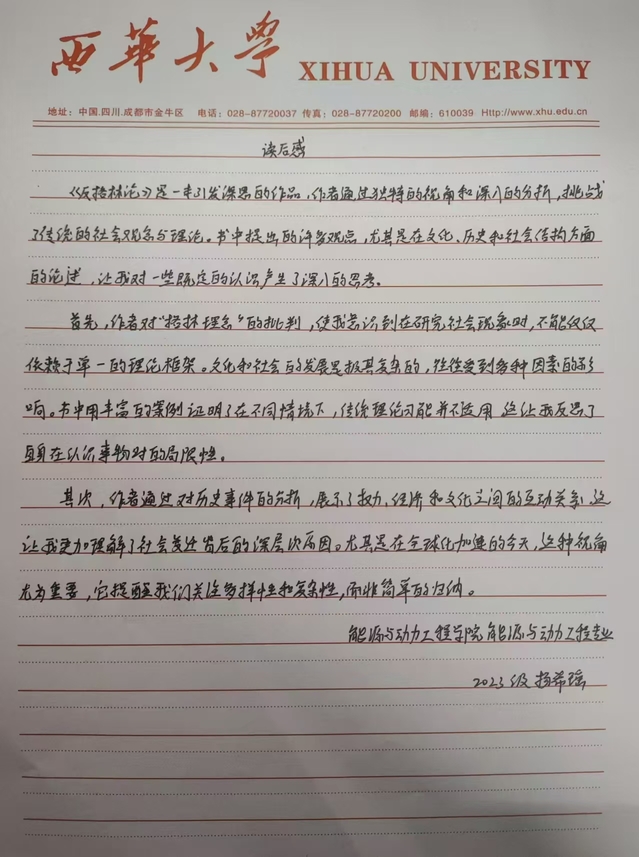 西華大學 XIHUA UNIVERSITY
地址：中国.四川.成都市金牛区 电话：028-87720037 传真：028-87720200 邮编：610039 Http://www.xhu.edu.cn
读后感
《反杜林论》是一本引发深思的作品，作者通过独特的视角和深入的分析，挑战
了传统的社会观念与理论。书中提出的许多观点，尤其是在文化、历史和社会结构方面
的论述，让我对一些既定的认识产生了深入的思考。
首先，作者对“杜林理念”的批判，使我意识到在研究社会现象时，不能仅仅
依赖于单一的理论框架。文化和社会的发展是极其复杂的，往往受到多种因素的影
响。书中用丰富的案例证明了在不同情境下，传统理论可能并不适用，这让我反思了
自身在认识事物时的局限性。
其次，作者通过对历史事件的分析，展示了权力、经济和文化之间的互动关系，这
让我更加理解了社会变迁背后的深层次原因。尤其是在全球化加速的今天，这种视角
尤为重要，它提醒我们关注多样性和复杂性，而非简单的归纳。
能源与动力工程学院能源与动力工程专业
2023级杨希瑶